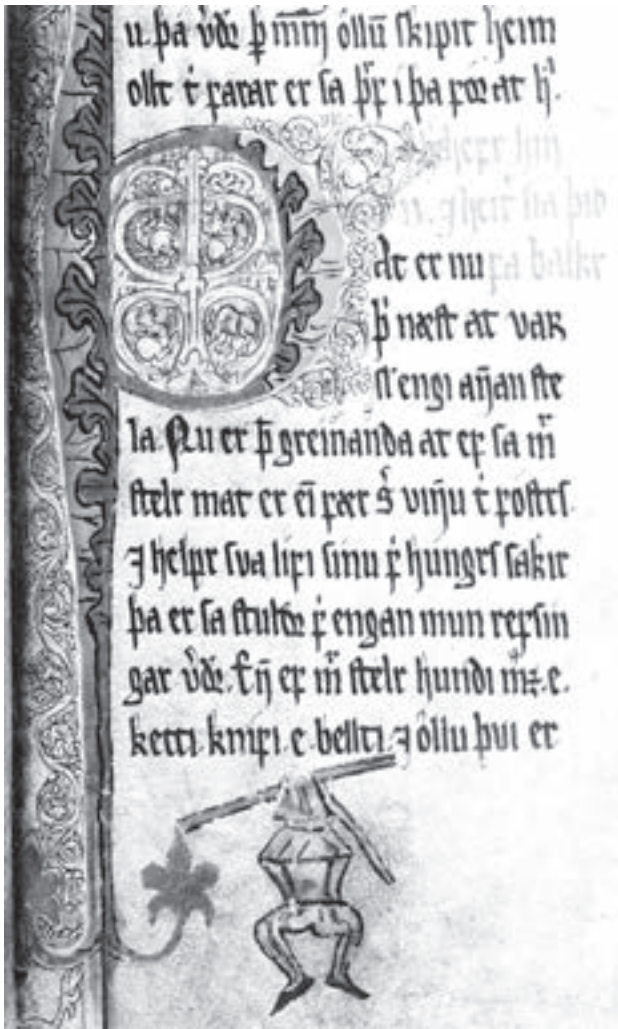 u. þa v̓dr̓ þ̄ m̄m̄ ỏllu̅ skipit heim
ollt t̓ farar er sa þr̓f i þa for at h̓.
hefr hin
n. ⁊ heir̓ sia þio
fa balkr
at er nu
þ̓ næst at var
sl̓ engi an̄an ste
la. Nu er þ̄ greinan̄da at ef sa m̄
stelr mat er ei̅ fær s̓ vin̄u t̓ fostrs.
⁊ helpr sva lifi sinu f̓ hungrs sakir
þa er sa stuldr f̓ engan mun refsin
gar v̓dr̓. En̄ ef m̄ stelr hundi m̄z. e.
ketti. knifi. e. bellti. ⁊ ỏllu þvi er